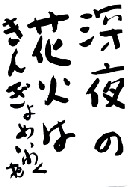 深夜の
花火は
きんぎょめいわく